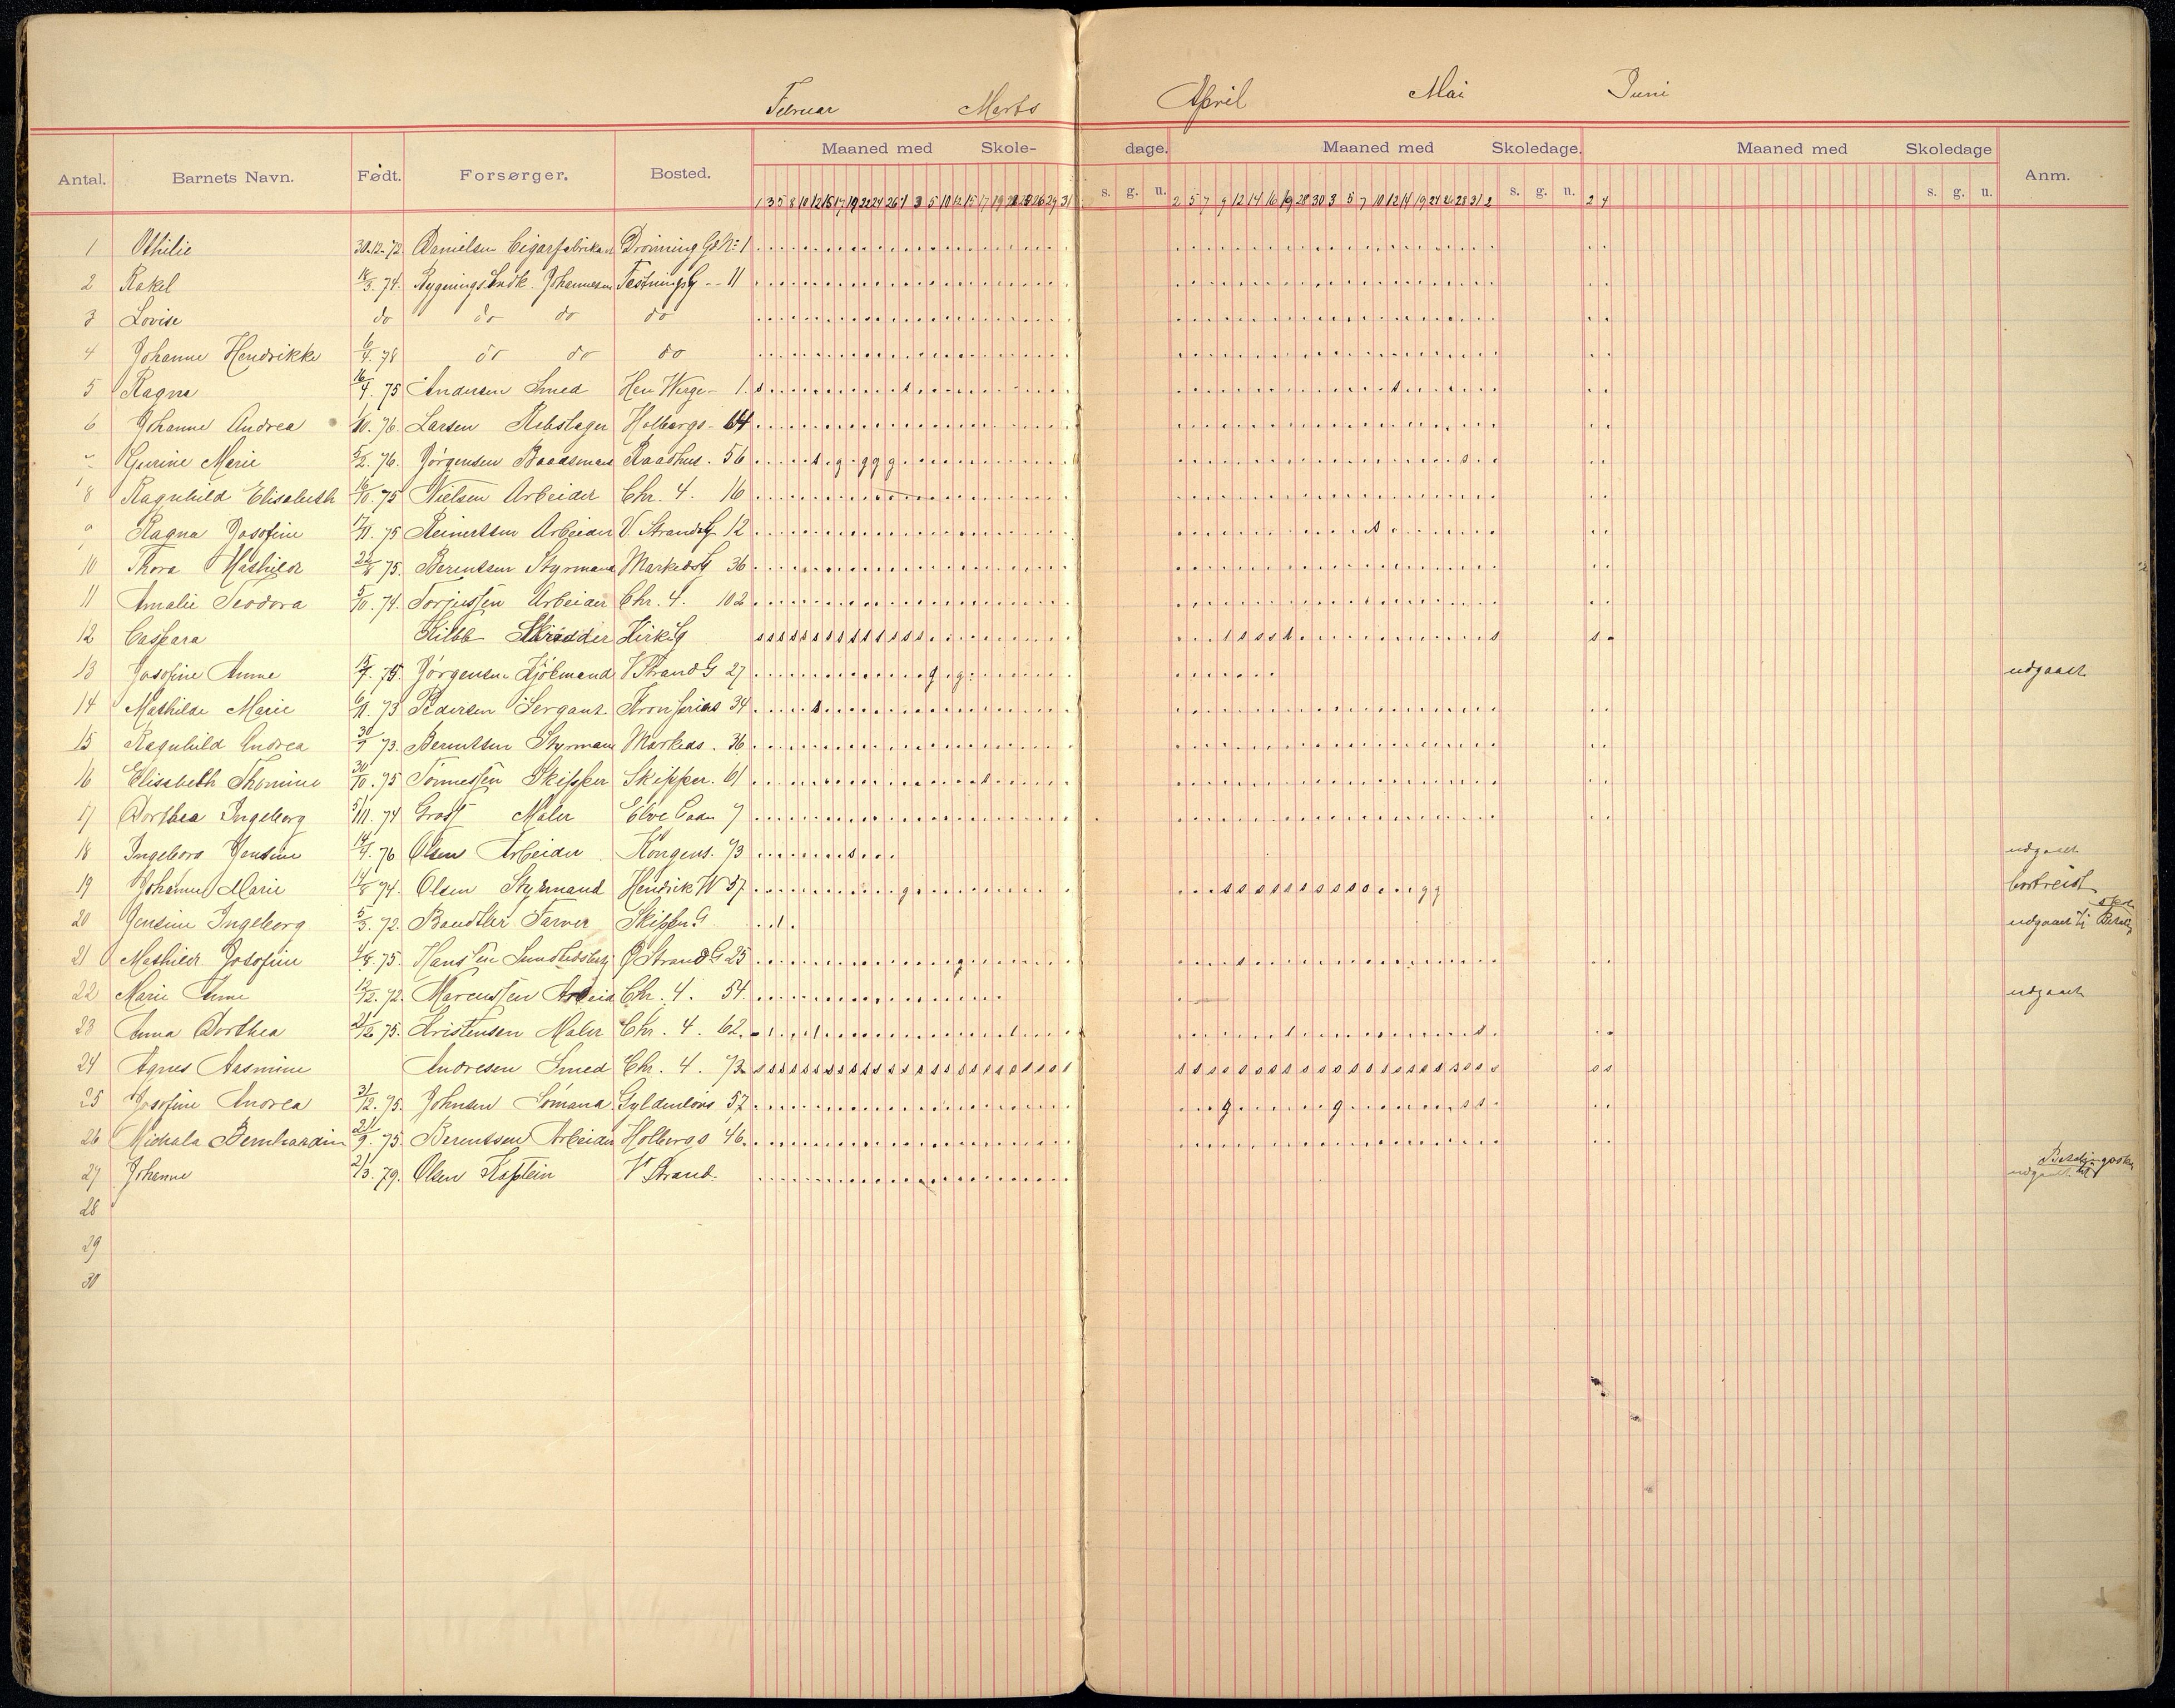 Februar Marts April Mai Juni
Maaned med Skole- dage. Maaned med Skoledage. Maaned med Skoledage
Antal. Barnets Navn. Født. Forsørger. Bosted. s. g. u. s. g. u. s. g. u. Anm.
1 3 5 8 10 12 15 17 19 22 24 26 1 3 5 10 12 15 17 19 22 23 26 29 31 2 5 7 9 12 14 16 19 28 30 3 5 7 10 12 14 19 21 26 28 31 2 2 4
1 Othilie 30-12-72. Danielsen Cigarfabrikan Dronning G. № 1
2 Rakel 18/3. 74. Johannesen Festningsg -- 11
3 Lovise do do do do
4 Johanne Hendrikke 6/4. 78 do do do
5 Ragna 16/4. 75 Andersen Smed Hen Werge- 1.
6 Johanne Andrea 1/10. 76. Larsen Rebslager Holbergs- 64
7 Gurine Marie 5/2. 76. Jørgensen Baadsmand Raadhus. 56
8 Ragnhild Elisabeth 16/10. 75 Nielsen Arbeider Chr. 4. 16
9 Ragna Josefine 17/11. 75 Reinertsen Arbeider V. Strandg 12
10 Thora Mathilde 22/8 75. Berentsen Styrmand Markedsg 36
11 Amalie Teodora 5/10. 74. Torjussen Arbeider Chr. 4. 102
12 Caspara Skrædder Kirkeg
13 Josefine Anne 15/4. 75. Jørgensen Kjøbmand V Strand G 27 udgaaet
14 Mathilde Marie 6/11. 73 Pedersen Sergant. Kronprins 34
15 Ragnhild Andrea 30/7 73. Berentsen Styrmand Markeds. 36
16 Elisabeth Thomine 30/10. 75 Tønnessen Skipper Skipper. 61
17 Dorthea Ingeborg 5/11. 74 Grost Maler Elve Gaden 7
18 Ingeborg Jensine 14/4. 76 Olsen Arbeider Kongens. 73 udgaaet
19 Johanne Marie 14/8 74. Olsen Styrmand Hendrik W 57 bortreist
20 Jensine Ingeborg 5/3. 72. Farver Skipper G udgaaet til Betal skole
21 Mathilde Josefine 4/8. 75. Hanssen Ø Strand G 25
22 Marie Anne 12/12. 72. Marcussen Arbeid Chr. 4. 54. udgaaet
23 Anna Dorthea 21/12 75. Kristensen Maler Chr. 4. 62.
24 Agnes Aasmine Andresen Smed Chr. 4. 73
25 Josefine Andrea 31/12. 75. Johnsen Sømand Gyldenløvs 57
26 Michala Bernhardine 21/9. 75 Berentsen Arbeider Holbergs 46.
27 Johanne 21/3. 79. Olsen Kaptein V Strand. udgaaet til
28
29
30